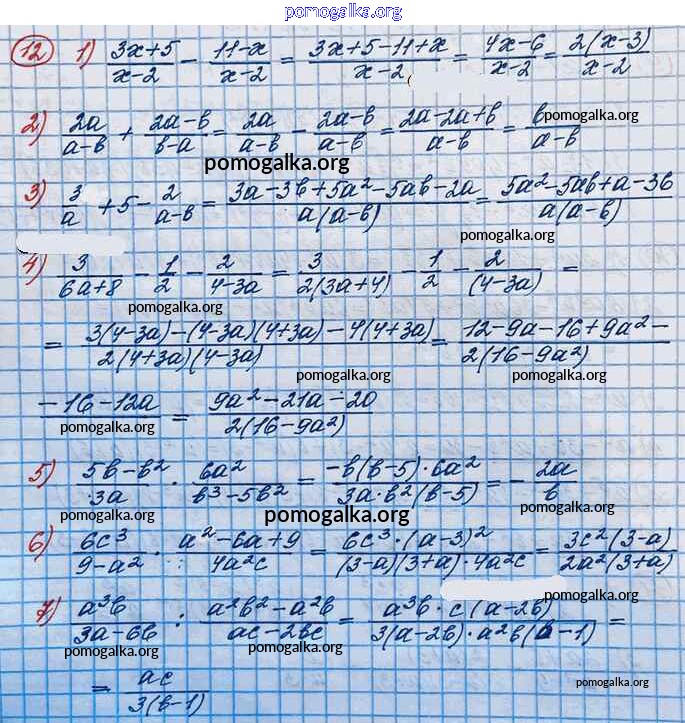 pomogalka.org
12 1) (3x+5)/(x-2) - (11-x)/(x-2) = (3x+5-11+x)/(x-2) = (4x-6)/(x-2) = 2(x-3)/(x-2)
2) 2a/(a-b) + (2a-b)/(b-a) = 2a/(a-b) - (2a-b)/(a-b) = (2a-2a+b)/(a-b) = b/(a-b)
pomogalka.org
pomogalka.org
3) 3/a + 5 - 2/(a-b) = (3a-3b+5a²-5ab-2a)/(a(a-b)) = (5a²-5ab+a-3b)/(a(a-b))
pomogalka.org
4) 3/(6a+8) - 1/2 - 2/(4-3a) = 3/(2(3a+4)) - 1/2 - 2/(4-3a) =
pomogalka.org
= (3(4-3a)-(4-3a)(4+3a)-4(4+3a))/(2(4+3a)(4-3a)) = (12-9a-16+9a²-)/(2(16-9a²))
pomogalka.org pomogalka.org
-16-12a = (9a²-21a-20)/(2(16-9a²))
pomogalka.org
5) (5b-b²)/3a · 6a²/(b³-5b²) = (-b(b-5)·6a²)/(3a·b²(b-5)) = - 2a/b
pomogalka.org pomogalka.org pomogalka.org
6) 6c³/(9-a²) · (a²-6a+9)/(4a²c) = (6c³·(a-3)²)/((3-a)(3+a)·4a²c) = (3c²(3-a))/(2a²(3+a))
pomogalka.org
7) a³b/(3a-6b) : (a²b²-a²b)/(ac-2bc) = (a³b·c(a-2b))/(3(a-2b)·a²b(b-1)) =
pomogalka.org pomogalka.org pomogalka.org
= ac/(3(b-1))
pomogalka.org